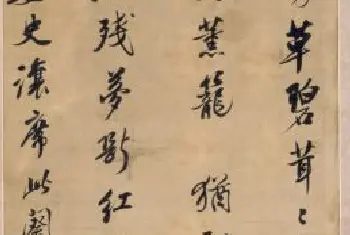 草碧茸〻
薰籠 猶
殘夢斷紅
史讓席此蘭